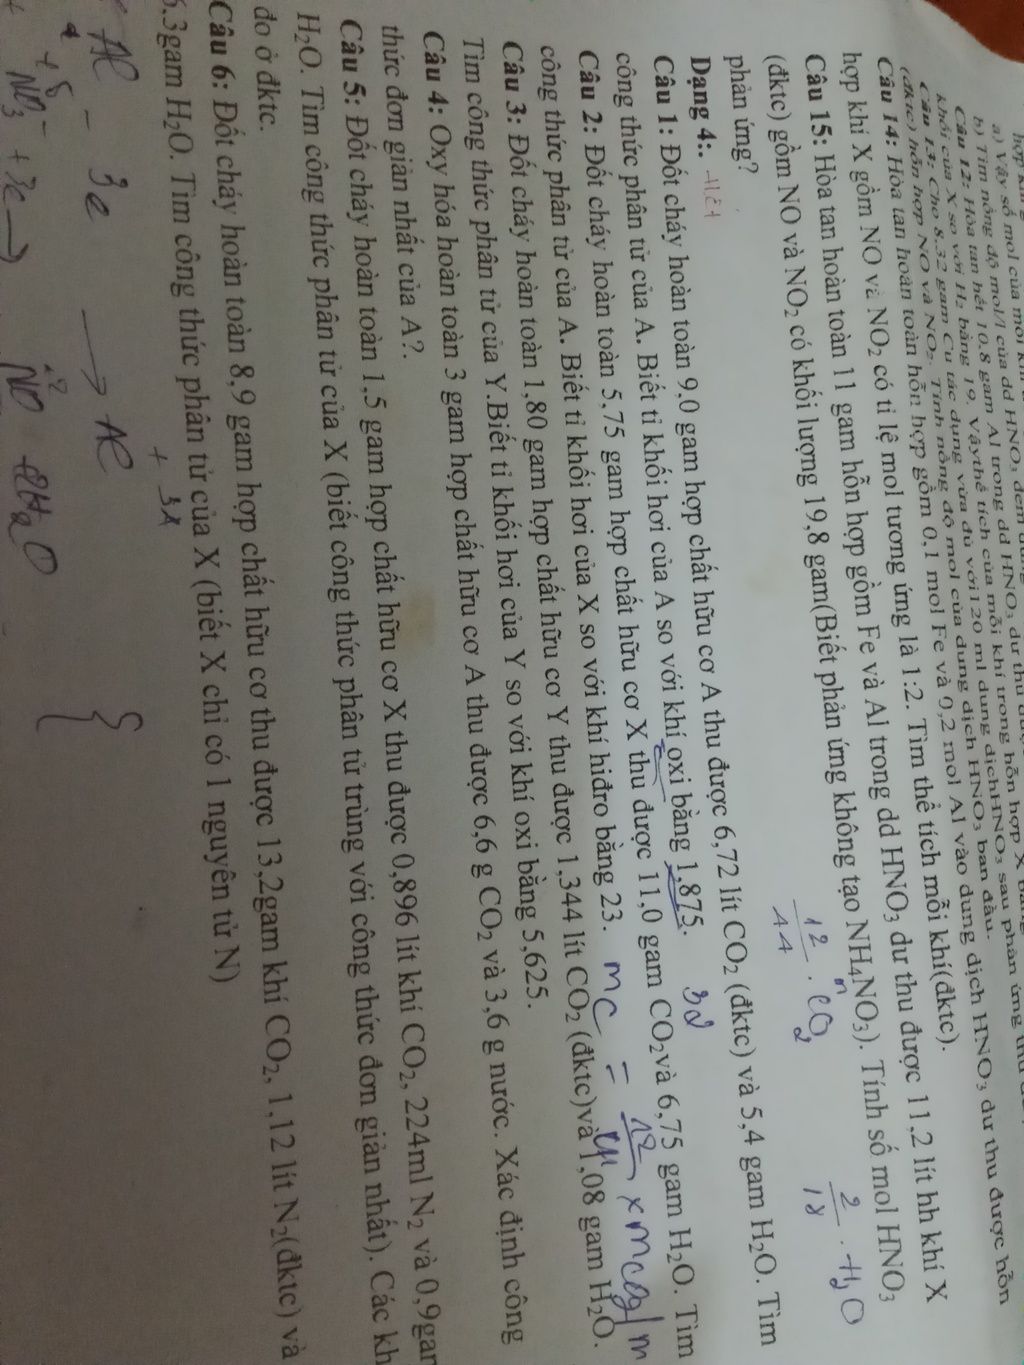 a) Vậy số mol của mỗi
b) Tìm nồng độ mol/l của dd HNO₃ đem
Câu 12: Hòa tan hết 10.8 gam Al trong dd HNO₃ dư thu
khối của X so với H₂ bằng 19. Vậy thể tích của mỗi khí trong hỗn hợp X
Câu 13: Cho 8.32 gam Cu tác dụng vừa đủ với 120 ml dung dịch HNO₃ sau phản ứng thu
(đktc) hỗn hợp NO và NO₂. Tính nồng độ mol của dung dịch HNO₃ ban đầu.
Câu 14: Hòa tan hoàn toàn hỗn hợp gồm 0,1 mol Fe và 0,2 mol Al vào dung dịch HNO₃ dư thu được hỗn
hợp khí X gồm NO và NO₂ có tỉ lệ mol tương ứng là 1:2. Tìm thể tích mỗi khí(đktc).
Câu 15: Hòa tan hoàn toàn 11 gam hỗn hợp gồm Fe và Al trong dd HNO₃ dư thu được 11,2 lít hh khí X
(đktc) gồm NO và NO₂ có khối lượng 19,8 gam(Biết phản ứng không tạo NH₄NO₃). Tính số mol HNO₃
phản ứng?
12/44 . CO₂ 2/18 . H₂O
Dạng 4:.
Câu 1: Đốt cháy hoàn toàn 9,0 gam hợp chất hữu cơ A thu được 6,72 lít CO₂ (đktc) và 5,4 gam H₂O. Tìm
công thức phân tử của A. Biết tỉ khối hơi của A so với khí oxi bằng 1,875. 32
Câu 2: Đốt cháy hoàn toàn 5,75 gam hợp chất hữu cơ X thu được 11,0 gam CO₂và 6,75 gam H₂O. Tìm
công thức phân tử của A. Biết tỉ khối hơi của X so với khí hiđro bằng 23. mC = 12/44 x mCO₂
Câu 3: Đốt cháy hoàn toàn 1,80 gam hợp chất hữu cơ Y thu được 1,344 lít CO₂ (đktc)và 1,08 gam H₂O.
Tìm công thức phân tử của Y.Biết tỉ khối hơi của Y so với khí oxi bằng 5,625.
Câu 4: Oxy hóa hoàn toàn 3 gam hợp chất hữu cơ A thu được 6,6 g CO₂ và 3,6 g nước. Xác định công
thức đơn giản nhất của A?.
Câu 5: Đốt cháy hoàn toàn 1,5 gam hợp chất hữu cơ X thu được 0,896 lít khí CO₂, 224ml N₂ và 0,9gam
H₂O. Tìm công thức phân tử của X (biết công thức phân tử trùng với công thức đơn giản nhất). Các kh
đo ở đktc.
Câu 6: Đốt cháy hoàn toàn 8,9 gam hợp chất hữu cơ thu được 13,2gam khí CO₂, 1,12 lít N₂(đktc) và
6.3gam H₂O. Tìm công thức phân tử của X (biết X chỉ có 1 nguyên tử N)
Al - 3e → Al
NO₃⁻ + 3e → NO + 2H₂O